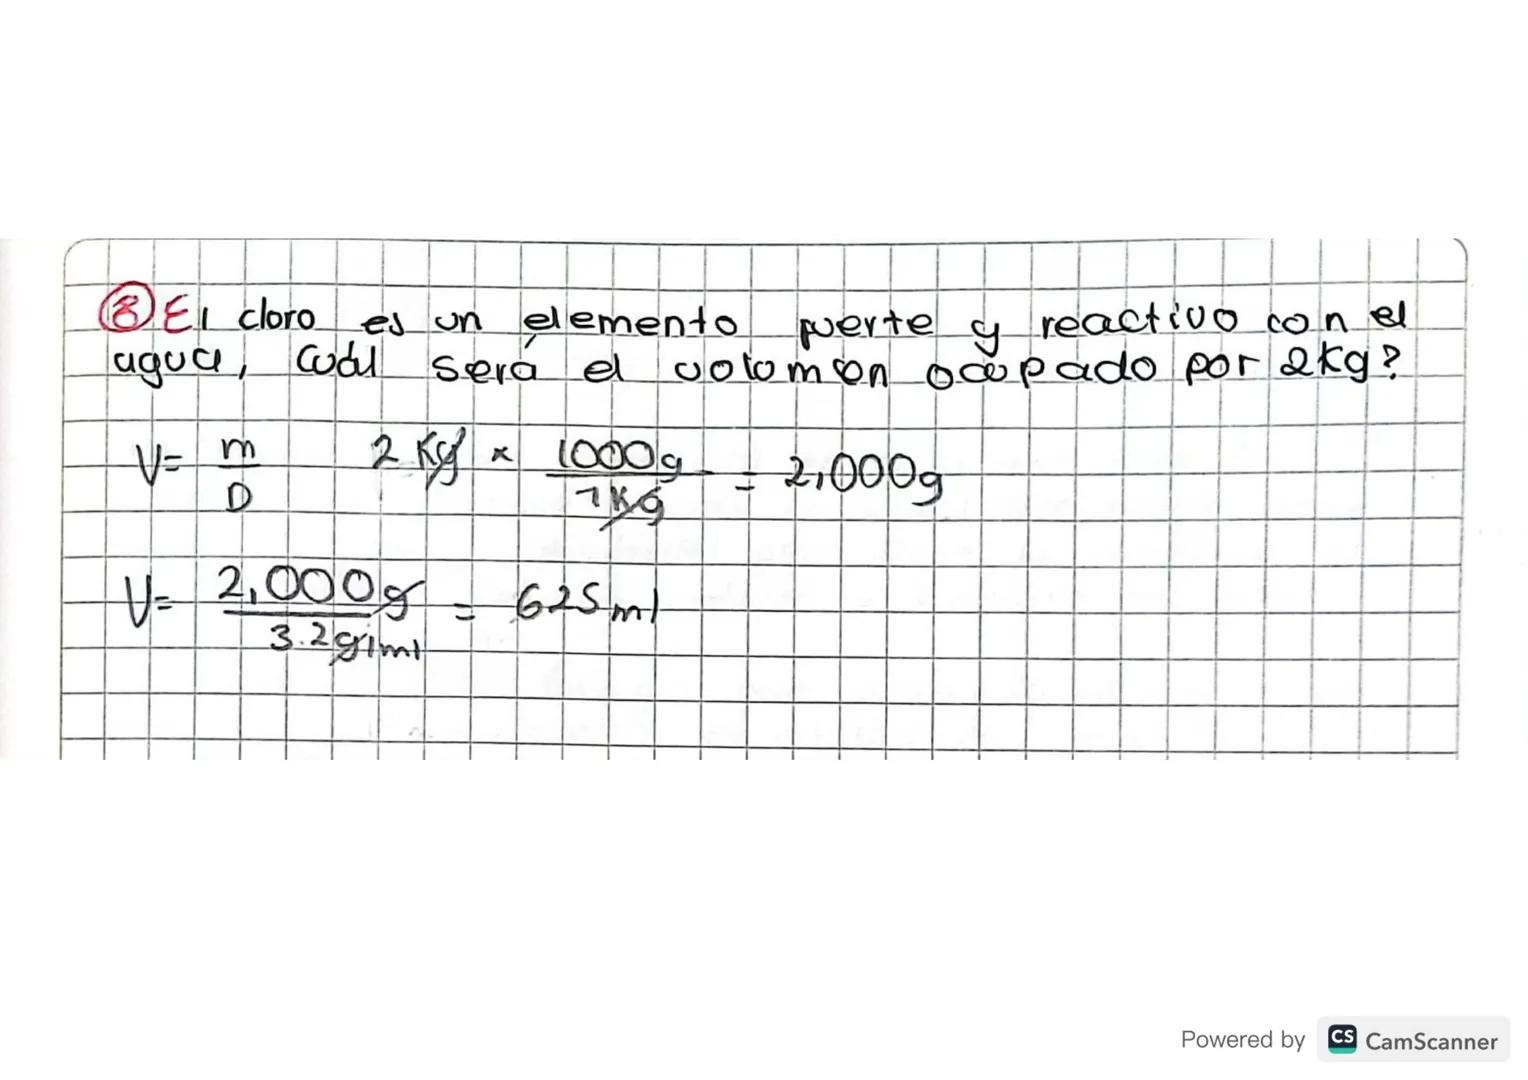 ⑧ El cloro es un elemento fuerte y reactivo con el
agua, cuál será el volumen ocupado por 2kg?
V= m/D 2 Kg x 1000g/1Kg = 2,000g
V= 2,000g/3.2g/ml = 625ml
Powered by CS CamScanner